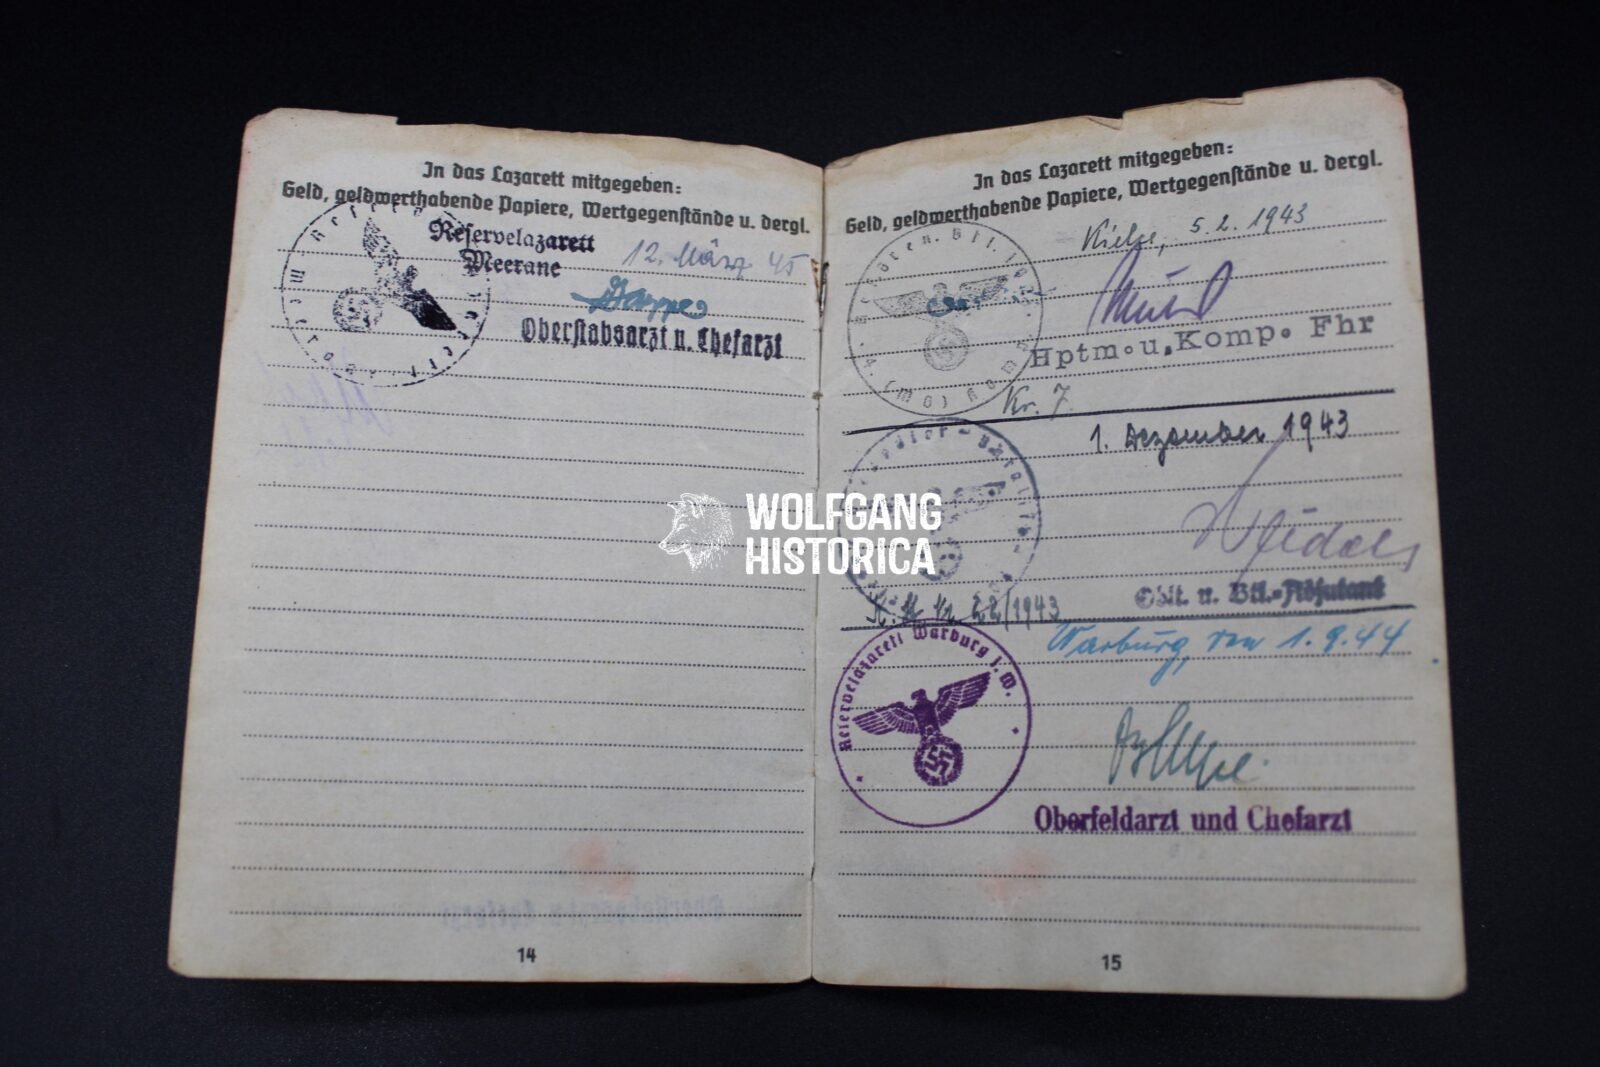 In das Lazarett mitgegeben:
Geld, geldwerthabende Papiere, Wertgegenstände u. dergl.
Reservelazarett
Meerane
12. März 45
Oberstabsarzt u. Chefarzt
14
In das Lazarett mitgegeben:
Geld, geldwerthabende Papiere, Wertgegenstände u. dergl.
Kielce, 5.2.1943
Hptm. u. Komp. Fhr
Kr. 7
1. Dezember 1943
Oblt. u. Btl.-Adjutant
22/1943
Reservelazarett Warburg i. W.
Warburg, den 1.9.44
Oberfeldarzt und Chefarzt
15
WOLFGANG
HISTORICA